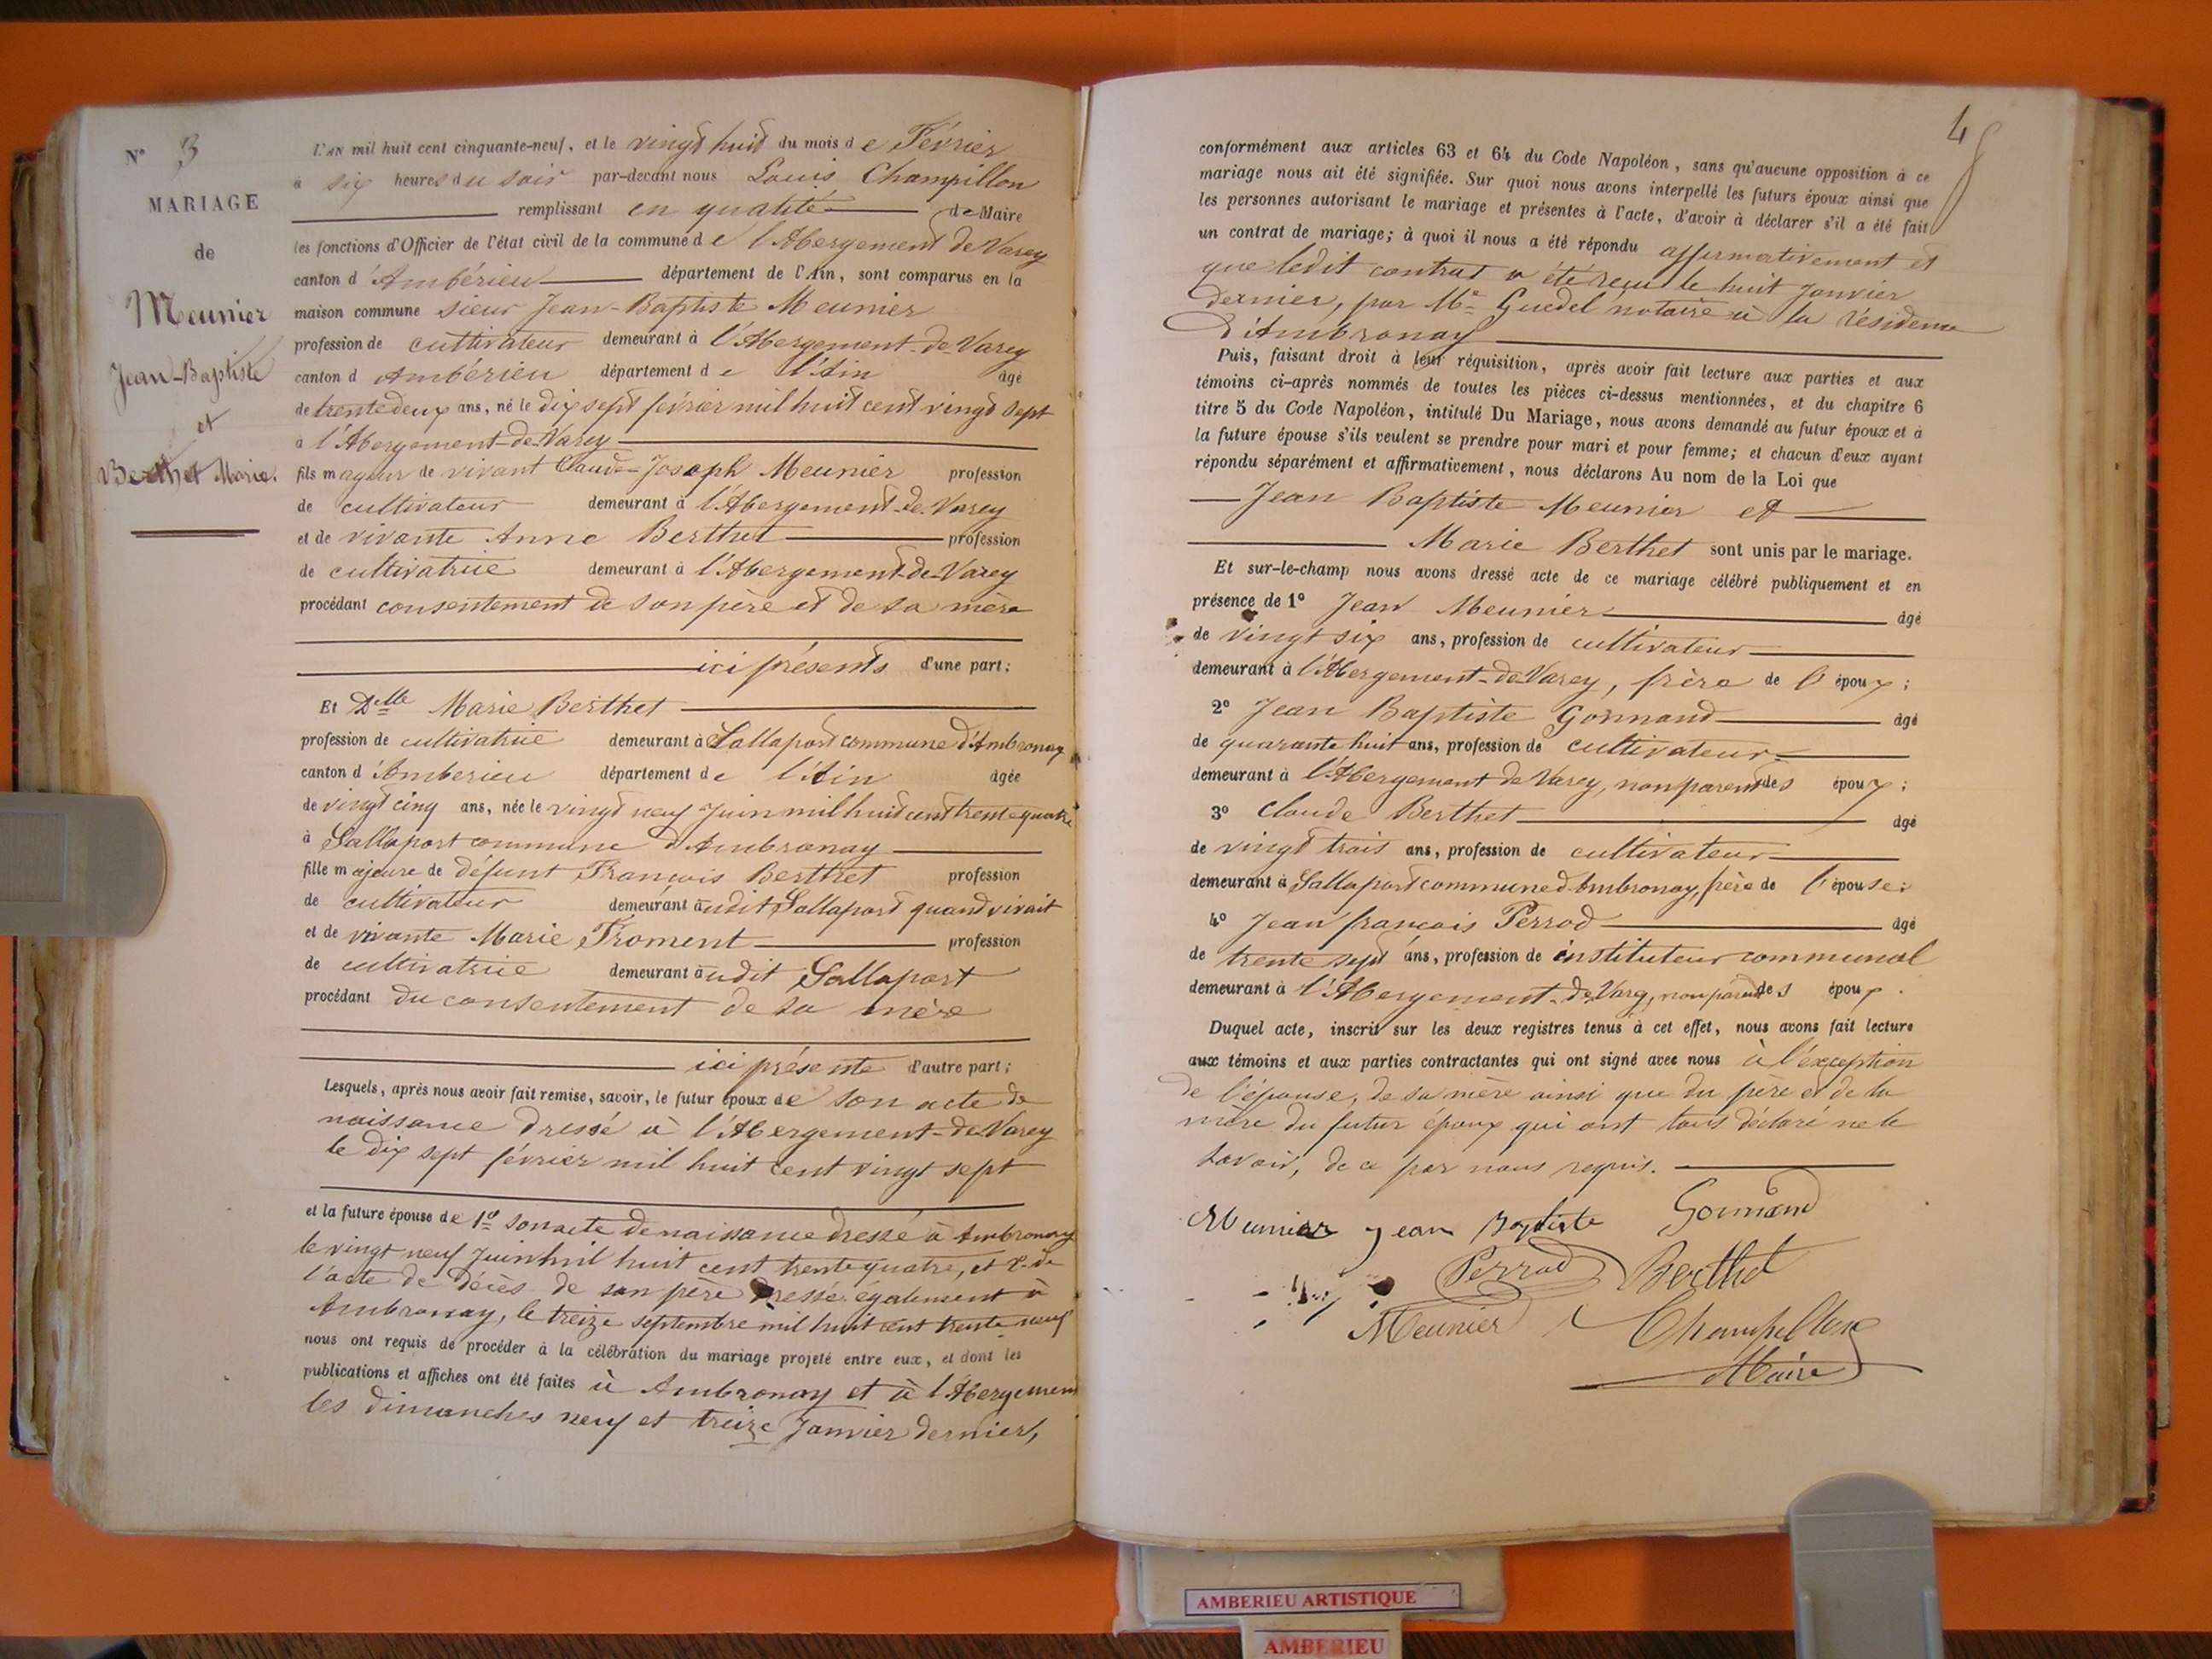 N° 3
MARIAGE
de
Meunier
Jean-Baptiste
et
Berthet Marie.
L'AN mil huit cent cinquante-neuf, et le vingt huit du mois de Février
à six heures du soir par-devant nous Louis Champillon
remplissant en qualité de Maire
les fonctions d'Officier de l'état civil de la commune de l'Abergement de Varey
canton d'Ambérieu département de l'Ain, sont comparus en la
maison commune sieur Jean-Baptiste Meunier
profession de cultivateur demeurant à l'Abergement-de-Varey
canton d Ambérieu département de l'Ain âgé
de trente deux ans, né le dix sept février mil huit cent vingt sept
à l'Abergement-de-Varey
fils majeur de vivant Claude-Joseph Meunier profession
de cultivateur demeurant à l'Abergement-de-Varey
et de vivante Anne Berthet profession
de cultivatrice demeurant à l'Abergement-de-Varey
procédant consentement de son père et de sa mère
ici présents d'une part;
Et Delle Marie Berthet
profession de cultivatrice demeurant à Sallaport commune d'Ambronay
canton d'Amberieu département de l'Ain âgée
de vingt cinq ans, née le vingt neuf Juin mil huit cent trente quatre
à Sallaport commune d'Ambronay
fille majeure de défunt François Berthet profession
de cultivateur demeurant audit Sallaport quand vivait
et de vivante Marie Froment profession
de cultivatrice demeurant audit Sallaport
procédant du consentement de sa mère
ici présente d'autre part;
Lesquels, après nous avoir fait remise, savoir, le futur époux de son acte de
naissance dressé à l'Abergement-de-Varey
le dix sept février mil huit cent vingt sept
et la future épouse de 1° son acte de naissance dressé à Ambronay
le vingt neuf Juin mil huit cent trente quatre, et 2° de
l'acte de décès de son père dressé également à
Ambronay, le treize septembre mil huit cent trente neuf
nous ont requis de procéder à la célébration du mariage projeté entre eux, et dont les
publications et affiches ont été faites à Ambronay et à l'Abergement
les dimanches neuf et treize Janvier dernier,
4
conformément aux articles 63 et 64 du Code Napoléon, sans qu'aucune opposition à ce
mariage nous ait été signifiée. Sur quoi nous avons interpellé les futurs époux ainsi que
les personnes autorisant le mariage et présentes à l'acte, d'avoir à déclarer s'il a été fait
un contrat de mariage; à quoi il nous a été répondu affirmativement et
que ledit contrat a été reçu le huit Janvier
dernier, par Me Guedel notaire à la résidence
d'Ambronay
Puis, faisant droit à leur réquisition, après avoir fait lecture aux parties et aux
témoins ci-après nommés de toutes les pièces ci-dessus mentionnées, et du chapitre 6
titre 5 du Code Napoléon, intitulé Du Mariage, nous avons demandé au futur époux et à
la future épouse s'ils veulent se prendre pour mari et pour femme; et chacun d'eux ayant
répondu séparément et affirmativement, nous déclarons Au nom de la Loi que
Jean Baptiste Meunier et
Marie Berthet sont unis par le mariage.
Et sur-le-champ nous avons dressé acte de ce mariage célébré publiquement et en
présence de 1° Jean Meunier âgé
de vingt six ans, profession de cultivateur
demeurant à l'Abergement-de-Varey, frère de l'époux;
2° Jean Baptiste Gonnand âgé
de quarante huit ans, profession de cultivateur
demeurant à l'Abergement de Varey, non parent des époux;
3° Claude Berthet âgé
de vingt trois ans, profession de cultivateur
demeurant à Sallaport commune d'Ambronay, frère de l'épouse;
4° Jean françois Perrod âgé
de trente sept ans, profession de instituteur communal
demeurant à l'Abergement-de-Varey, non parent des époux.
Duquel acte, inscrit sur les deux registres tenus à cet effet, nous avons fait lecture
aux témoins et aux parties contractantes qui ont signé avec nous à l'exception
de l'épouse, de sa mère ainsi que du père et de la
mère du futur époux qui ont tous déclaré ne le
savoir, de ce par nous requis.
Meunier jean Baptiste Gonnand
Perrod Berthet
Meunier Champillon
Maire
AMBERIEU ARTISTIQUE
AMBERIEU